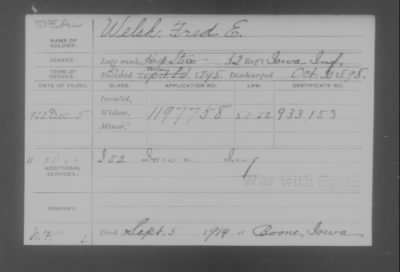 DEAD
Welch, Fred E.
NAME OF
SOLDIER:
SERVICE:
Late rank, Hosp Stew , 52 Reg't Iowa Inf.
TERM OF
SERVICE:
Enlisted 1898. Discharged Oct. 30 1898.
DATE OF FILING.
CLASS.
APPLICATION NO.
LAW.
CERTIFICATE NO.
Invalid,
1922 Dec. 5
Widow,
1197758
5-1-22
933.153
Minor,
ADDITIONAL
SERVICES:
I 52 Iowa Inf
War with Spain
REMARKS:
Died Sept. 5 1919, at Boone, Iowa